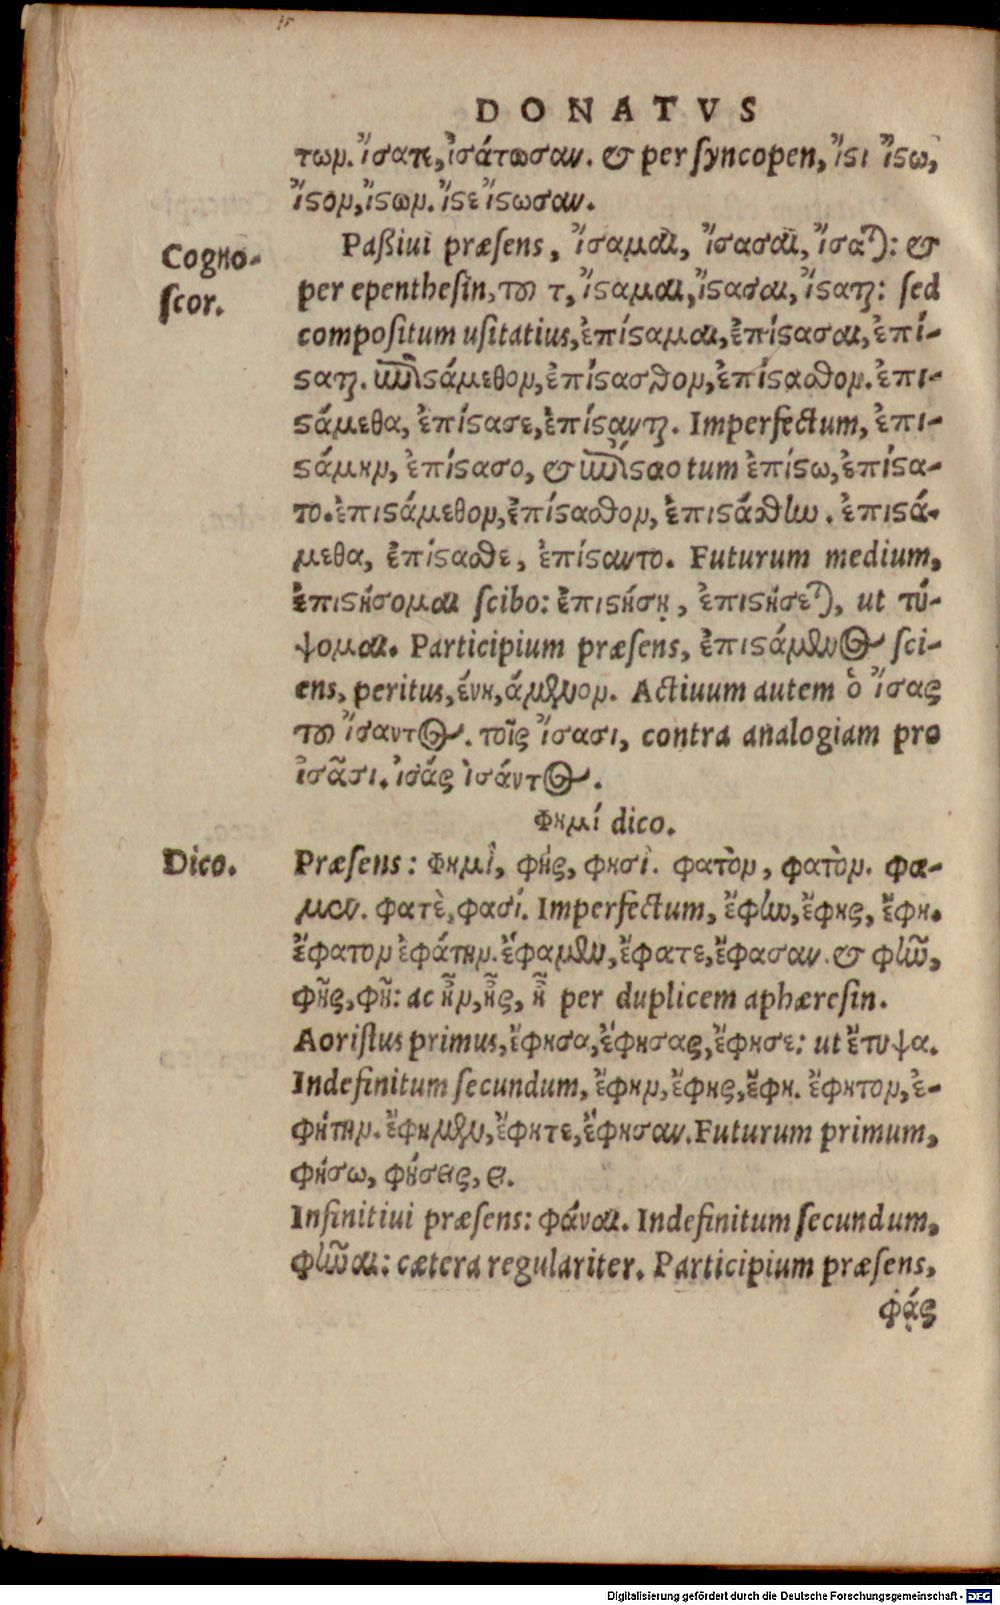 DONATVS
των. ἴσατε, ἰσάτωσαν. & per syncopen, ἴσθι ἴστω,
ἴστον, ἴστων. ἴστε ἴστωσαν.
Cogno-
scor.
Paßiui præsens, ἴσαμαι, ἴσασαι, ἴσαται: &
per epenthesin, τοῦ τ, ἴσταμαι, ἴστασαι, ἴσταται: sed
compositum usitatius, ἐπίσταμαι, ἐπίστασαι, ἐπί-
σταται. ἐπιστάμεθον, ἐπίστασθον, ἐπίστασθον. ἐπι-
στάμεθα, ἐπίστασε, ἐπίστανται. Imperfectum, ἐπι-
στάμην, ἐπίστασο, & ἐπίσταο tum ἐπίστω, ἐπίστα-
το. ἐπιστάμεθον, ἐπίστασθον, ἐπιστάσθην. ἐπιστά-
μεθα, ἐπίστασθε, ἐπίσταντο. Futurum medium,
ἐπιστήσομαι scibo: ἐπιστήσῃ, ἐπιστήσεται, ut τύ-
ψομαι. Participium præsens, ἐπιστάμενος sci-
ens, peritus, ένη, άμενον. Actiuum autem ὁ ἴσας
τοῦ ἴσαντος. τοῖς ἴσασι, contra analogiam pro
ἰσᾶσι. ἰσάς ἰσάντος.
Φημί dico.
Dico.
Præsens: Φημὶ, φῄς, φησὶ. φατὸν, φατὸν. φα-
μεν. φατὲ, φασί. Imperfectum, ἔφην, ἔφης, ἔφη.
ἔφατον ἐφάτην. ἔφαμεν, ἔφατε, ἔφασαν. & φῆν,
φῆς, φῆ: ac ἦν, ἦς, ἦ per duplicem aphæresin.
Aoristus primus, ἔφησα, ἔφησας, ἔφησε: ut ἔτυψα.
Indefinitum secundum, ἔφην, ἔφης, ἔφη. ἔφητον, ἐ-
φήτην. ἔφημεν, ἔφητε, ἔφησαν. Futurum primum,
φήσω, φήσεις, ει.
Infinitiui præsens: φάναι. Indefinitum secundum,
φῆναι: cætera regulariter. Participium præsens,
φάς
Digitalisierung gefördert durch die Deutsche Forschungsgemeinschaft - DFG